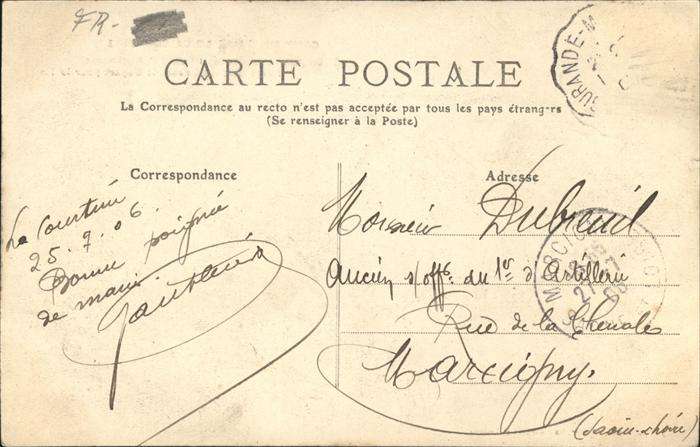 FR-
CARTE POSTALE
La Correspondance au recto n'est pas acceptée par tous les pays étrangers
(Se renseigner à la Poste)
Correspondance
La Courtine
25.9.06.
Bonne poignée
de main.
Adresse
Monsieur Dubreuil
Ancien s/offr. du 1er d'Artillerie
Rue de la
Marcigny.
(Saône-&-Loire)